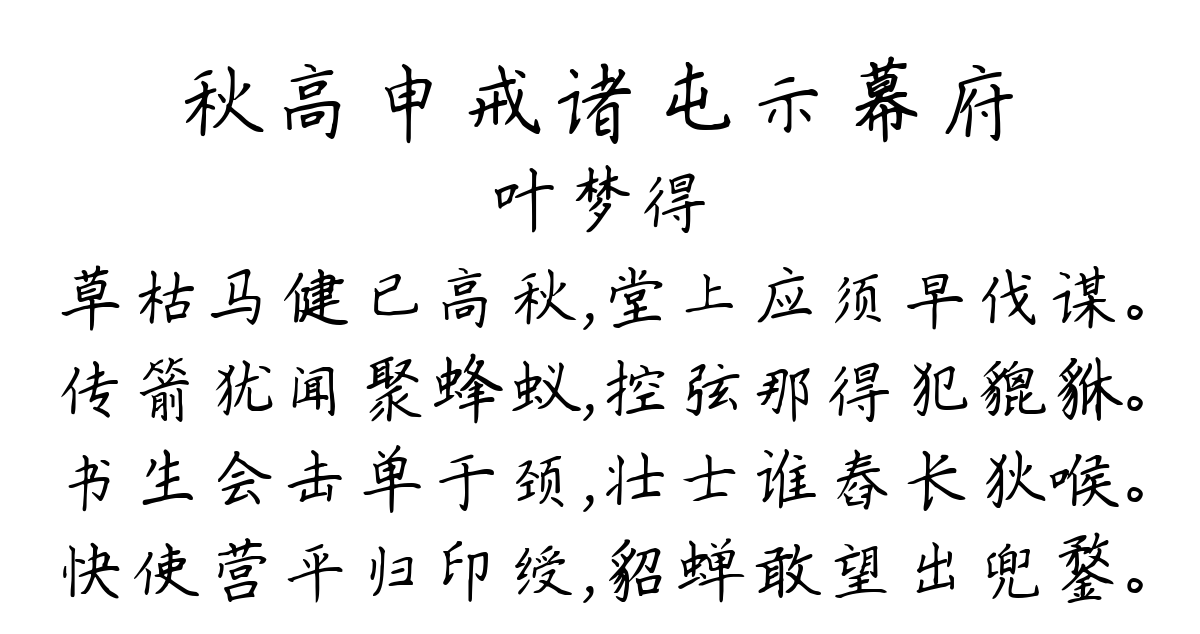 秋高申戒诸屯示幕府
叶梦得
草枯马健已高秋,堂上应须早伐谋。
传箭犹闻聚蜂蚁,控弦那得犯貔貅。
书生会击单于颈,壮士谁舂长狄喉。
快使营平归印绶,貂蝉敢望出兜鍪。